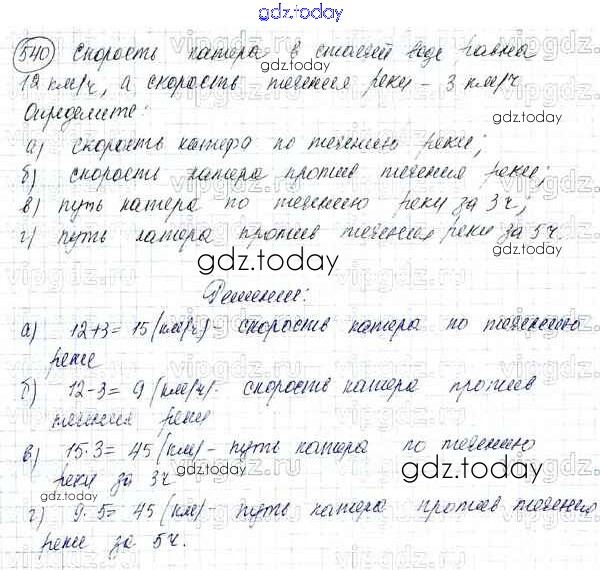 gdz.today
540 Скорость катера в стоячей воде равна
12 км/ч, а скорость течения реки - 3 км/ч.
gdz.today
Определите:
gdz.today
а) скорость катера по течению реки;
б) скорость катера против течения реки;
в) путь катера по течению реки за 3 ч;
г) путь катера против течения реки за 5 ч.
gdz.today
gdz.today
Решение:
а) 12+3= 15 (км/ч) - скорость катера по течению
реке
б) 12-3= 9 (км/ч) - скорость катера против
течения реки
в) 15·3= 45 (км) - путь катера по течению
реки за 3ч
gdz.today
gdz.today
г) 9·5= 45 (км) - путь катера против течению
реке за 5 ч.
gdz.today